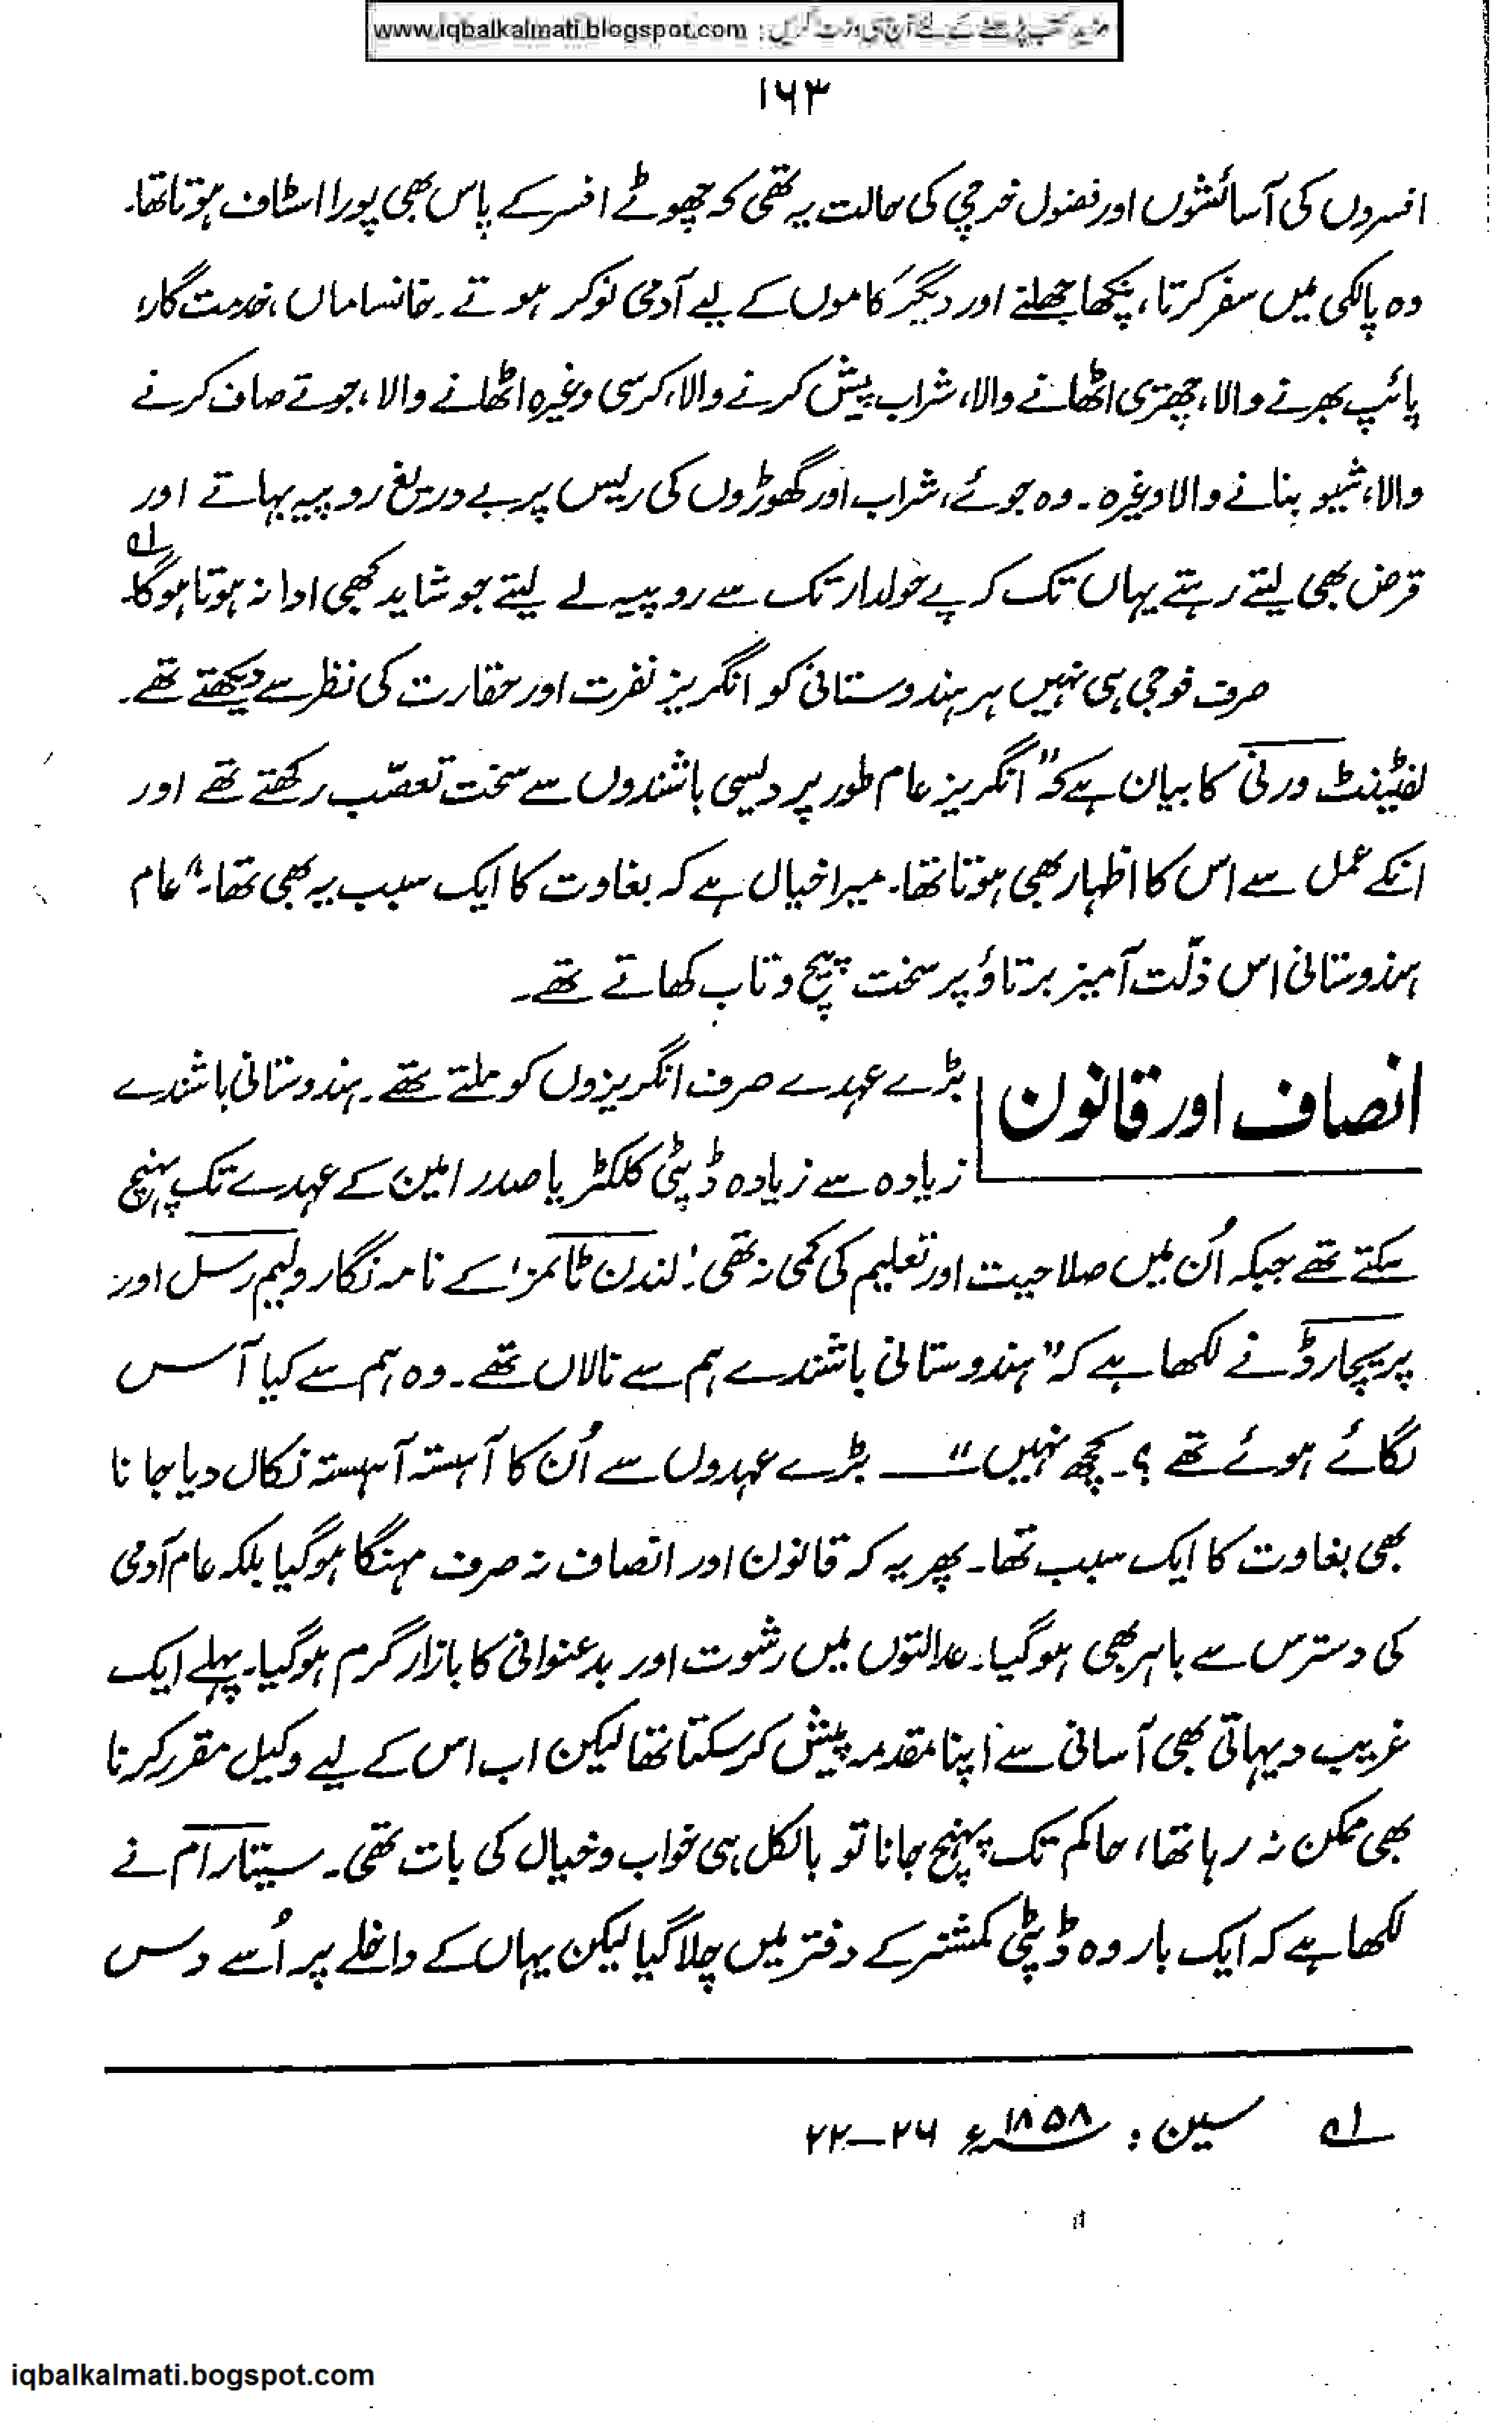 مزید کتب پڑھنے کے لئے آج ہی وزٹ کریں : www.iqbalkalmati.blogspot.com
۱۶۳
افسروں کی آسائشوں اور فضول خرچی کی حالت یہ تھی کہ چھوٹے افسر کے پاس بھی پورا اسٹاف ہوتا تھا۔
وہ پالکی میں سفر کرتا، پنکھا جھلنے اور دیگر کاموں کے لیے آدمی نوکر ہوتے۔ خانساماں، خدمت گار،
پائپ بھرنے والا، چھتری اٹھانے والا، شراب پیش کرنے والا، کرسی وغیرہ اٹھانے والا، جوتے صاف کرنے
والا، شیو بنانے والا وغیرہ۔ وہ جوئے، شراب اور گھوڑوں کی ریس پر بے دریغ روپیہ بہاتے اور
قرض بھی لیتے رہتے یہاں تک کہ پے حولدار تک سے روپیہ لے لیتے جو شاید کبھی ادا نہ ہوتا ہوگا۔ ؎۱
صرف فوجی ہی نہیں ہر ہندوستانی کو انگریز نفرت اور حقارت کی نظر سے دیکھتے تھے۔
لفٹیننٹ ورنی کا بیان ہے کہ "انگریز عام طور پر دیسی باشندوں سے سخت تعصّب رکھتے تھے اور
انکے عمل سے اس کا اظہار بھی ہوتا تھا۔ میرا خیال ہے کہ بغاوت کا ایک سبب یہ بھی تھا۔" عام
ہندوستانی اس ذلّت آمیز برتاؤ پر سخت پیچ و تاب کھاتے تھے۔
انصاف اور قانون
بڑے عہدے صرف انگریزوں کو ملتے تھے۔ ہندوستانی باشندے
زیادہ سے زیادہ ڈپٹی کلکٹر یا صدر امین کے عہدے تک پہنچ
سکتے تھے جبکہ اُن میں صلاحیت اور تعلیم کی کمی نہ تھی۔ 'لندن ٹائمز' کے نامہ نگار ولیم رسل اور
پریچارڈ نے لکھا ہے کہ "ہندوستانی باشندے ہم سے نالاں تھے۔ وہ ہم سے کیا آس
لگائے ہوئے تھے ؟۔ کچھ نہیں" — بڑے عہدوں سے اُن کا آہستہ آہستہ نکال دیا جانا
بھی بغاوت کا ایک سبب تھا۔ پھر یہ کہ قانون اور انصاف نہ صرف مہنگا ہوگیا بلکہ عام آدمی
کی دسترس سے باہر بھی ہوگیا۔ عدالتوں میں رشوت اور بدعنوانی کا بازار گرم ہوگیا۔ پہلے ایک
غریب دیہاتی بھی آسانی سے اپنا مقدمہ پیش کرسکتا تھا لیکن اب اس کے لیے وکیل مقرر کرنا
بھی ممکن نہ رہا تھا، حاکم تک پہنچ جانا تو بالکل ہی خواب و خیال کی بات تھی۔ سیتارام نے
لکھا ہے کہ ایک بار وہ ڈپٹی کمشنر کے دفتر میں چلا گیا لیکن یہاں کے داخلے پر اُسے دس
؎۱ سین : ۱۸۵۸ء ۲۶—۲۲
iqbalkalmati.bogspot.com